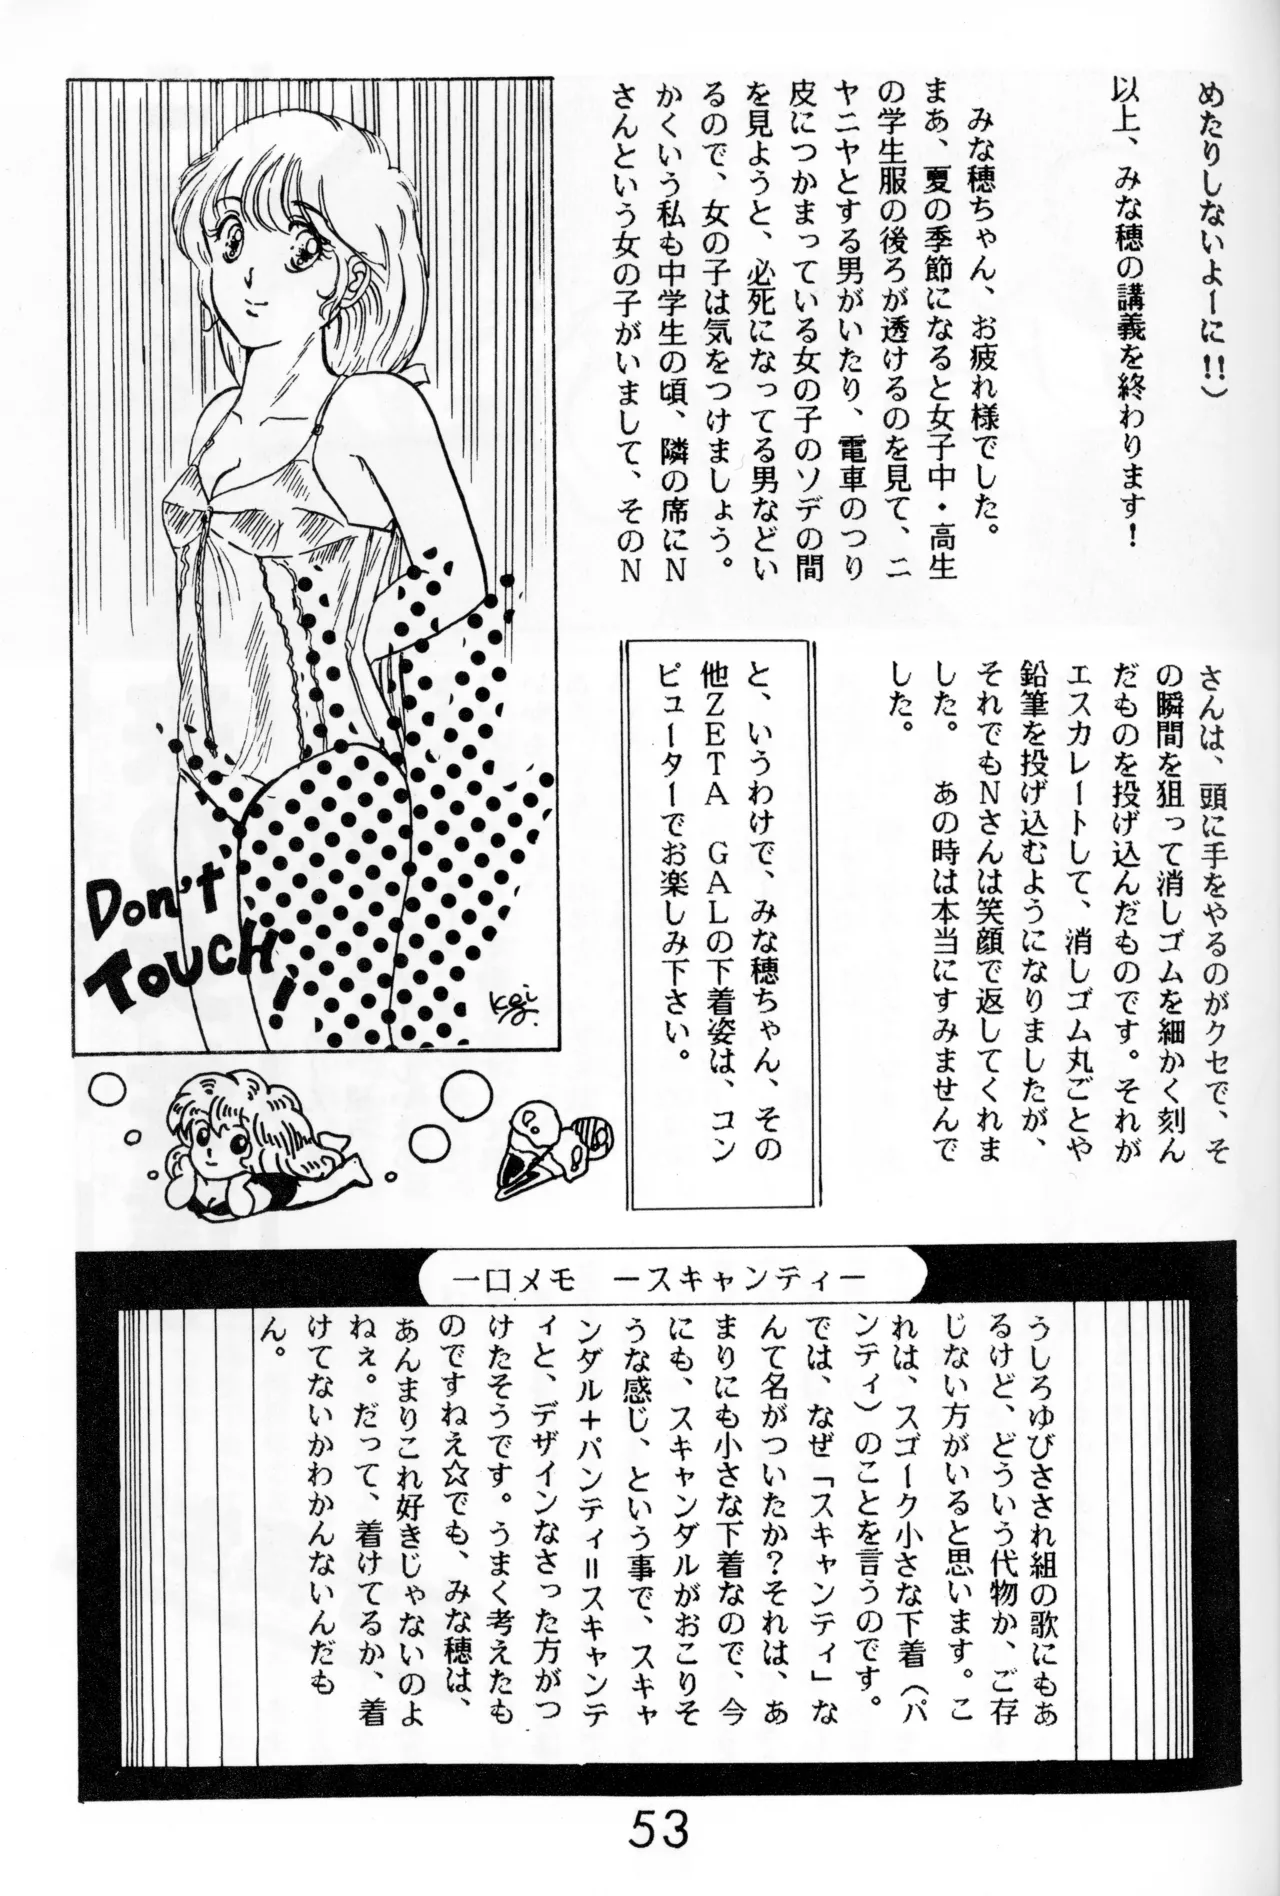 めたりしないよーに!!)
以上、みな穂の講義を終わります!
みな穂ちゃん、お疲れ様でした。
まあ、夏の季節になると女子中・高生
の学生服の後ろが透けるのを見て、ニ
ヤニヤとする男がいたり、電車のつり
皮につかまっている女の子のソデの間
を見ようと、必死になってる男などい
るので、女の子は気をつけましょう。
かくいう私も中学生の頃、隣の席にN
さんという女の子がいまして、そのN
さんは、頭に手をやるのがクセで、そ
の瞬間を狙って消しゴムを細かく刻ん
だものを投げ込んだものです。それが
エスカレートして、消しゴム丸ごとや
鉛筆を投げ込むようになりましたが、
それでもNさんは笑顔で返してくれま
した。　あの時は本当にすみませんで
した。
と、いうわけで、みな穂ちゃん、その
他ZETA　GALの下着姿は、コン
ピューターでお楽しみ下さい。
Don't
TOUCH!
Kgi
一口メモ　ースキャンティー
うしろゆびさされ組の歌にもあ
るけど、どういう代物か、ご存
じない方がいると思います。こ
れは、スゴーク小さな下着(パ
ンティ)のことを言うのです。
では、なぜ「スキャンティ」な
んて名がついたか?それは、あ
まりにも小さな下着なので、今
にも、スキャンダルがおこりそ
うな感じ、という事で、スキャ
ンダル+パンティ=スキャンテ
ィと、デザインなさった方がつ
けたそうです。うまく考えたも
のですねえ☆でも、みな穂は、
あんまりこれ好きじゃないのよ
ねぇ。だって、着けてるか、着
けてないかわかんないんだも
ん。
53